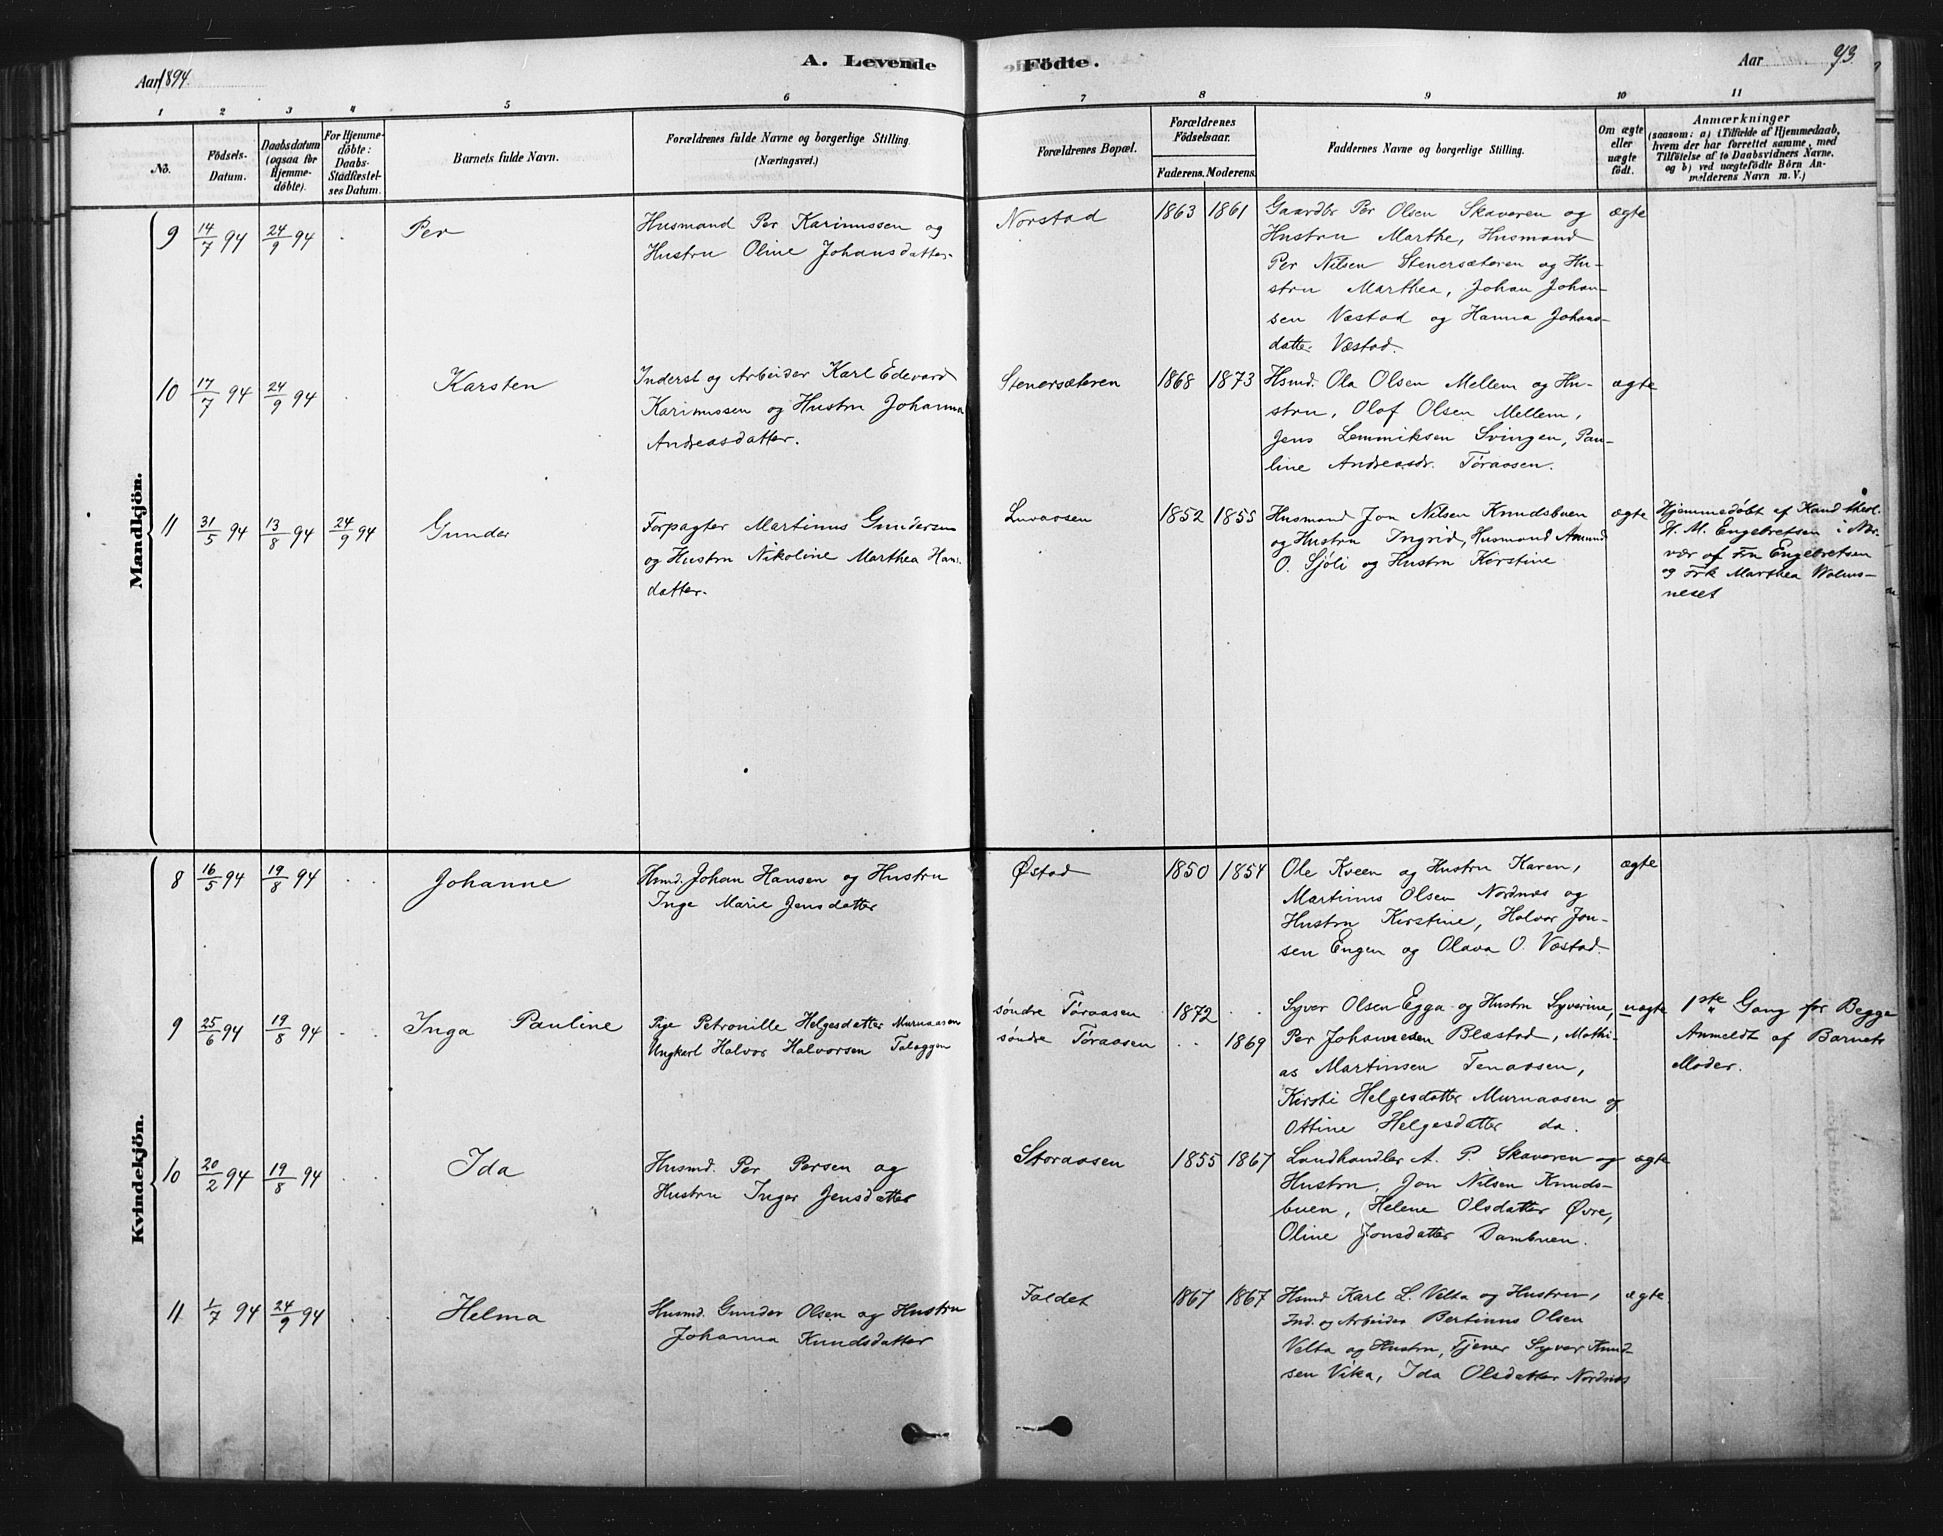 Aar 1894.
A. Levende Födte.
Aar
93.
1 2 3 4 5 6 7 8 9 10 11
No.
Födsels-
Datum.
Daabsdatum
(ogsaa for
Hjemme-
døbte).
For Hjemme-
döbte:
Daabs-
Stadfæstel-
ses Datum.
Barnets fulde Navn.
Forældrenes fulde Navne og borgerlige Stilling
(Næringsvei.)
Forældrenes Bopæl.
Forældrenes
Födselsaar.
Faderens. Moderens.
Faddernes Navne og borgerlige Stilling.
Om ægte
eller
uægte
født.
Anmærkninger
(saasom: a) i Tilfælde af Hjemmedaab,
hvem der har forrettet samme, med
Tilföielse af to Daabsvidners Navne,
og b) ved uægtefödte Börn An-
melderens Navn m. V.)
Mandkjön.
9 14/7 94 24/9 94 . Per
Husmand Per Karinussen og
Hustru Oline Johansdatter.
Norstad 1863 1861
Gaardbr Per Olsen Skaveren og
Hustru Marthe, Husmand
Per Nilsen Stenersæteren og Hu-
stru Marthea, Johan Johan-
sen Væstad og Hanna Johans-
datter Væstad.
ægte
10 17/7 94 24/9 94 . Karsten
Inderst og Arbeider Karl Edevard
Karinussen og Hustru Johanna
Andreasdatter.
Stenersæteren 1868 1873
Hsmd. Ola Olsen Mellem og Hu-
stru, Olof Olsen Mellem,
Jens Lemmiksen Svingen, Pau-
line Andreasdr. Töraasen.
ægte
11 31/5 94 13/8 94 24/9 94 Gunder
Forpagter Martinus Gundersen
og Hustru Nikoline Marthea Hans-
datter.
Luvaasen 1852 1855
Husmand Jon Nilsen Knudsbuen
og Hustru Ingrid, Husmand Amund
O. Sjöli og Hustru Kirstine
ægte
Hjemmedøbt af Kand. theol.
H. M. Engebretsen i Nær-
vær af Fru Engebretsen
og Frk Marthea Wolms-
neset
Kvindekjön.
8 16/5 94 19/8 94 . . Johanne
Hsmd. Johan Hansen og Hustru
Inge Marie Jensdatter
Østad 1850 1854
Ole Kveen og Hustru Karen,
Martinus Olsen Nordnæs og
Hustru Kirstine, Halvor Jon-
sen Engen og Olava O. Væstad.
ægte
9 25/6 94 19/8 94 . . Inga Pauline
Pige Petronille Helgesdatter Murnaasen
Ungkarl Halvor Halvorsen
söndre Töraasen 1872 . .
söndre Töraasen . . 1869
Syver Olsen Egga og Hustru Syverine,
Per Johannesen Blæstad, Mathi-
as Martinsen Tenaasen,
Kirsti Helgesdatter Murnaasen og
Ottine Helgesdatter do.
uægte
1ste Gang for Begge
Anmeldt af Barnets
Moder.
10 20/2 94 19/8 94 Ida
Husmd. Per Persen og
Hustru Inger Jensdatter
Storaasen 1855 1867
Landhandler A. P. Skaveren og
Hustru, Jon Nilsen Knuds-
buen, Helene Olsdatter Øvre,
Oline Jonsdatter Dambuen.
ægte
11 1/7 94 24/9 94 Helma
Husmd. Gunder Olsen og Hustru
Johanna Knudsdatter
Faldet 1867 1867
Hsmd Karl L. Velta og Hustru,
Ind. og Arbeider Bertinus Olsen
Velta og Hustru, Tjener Syver Knud-
sen Vika, Ida Olsdatter Nordnæs
ægte